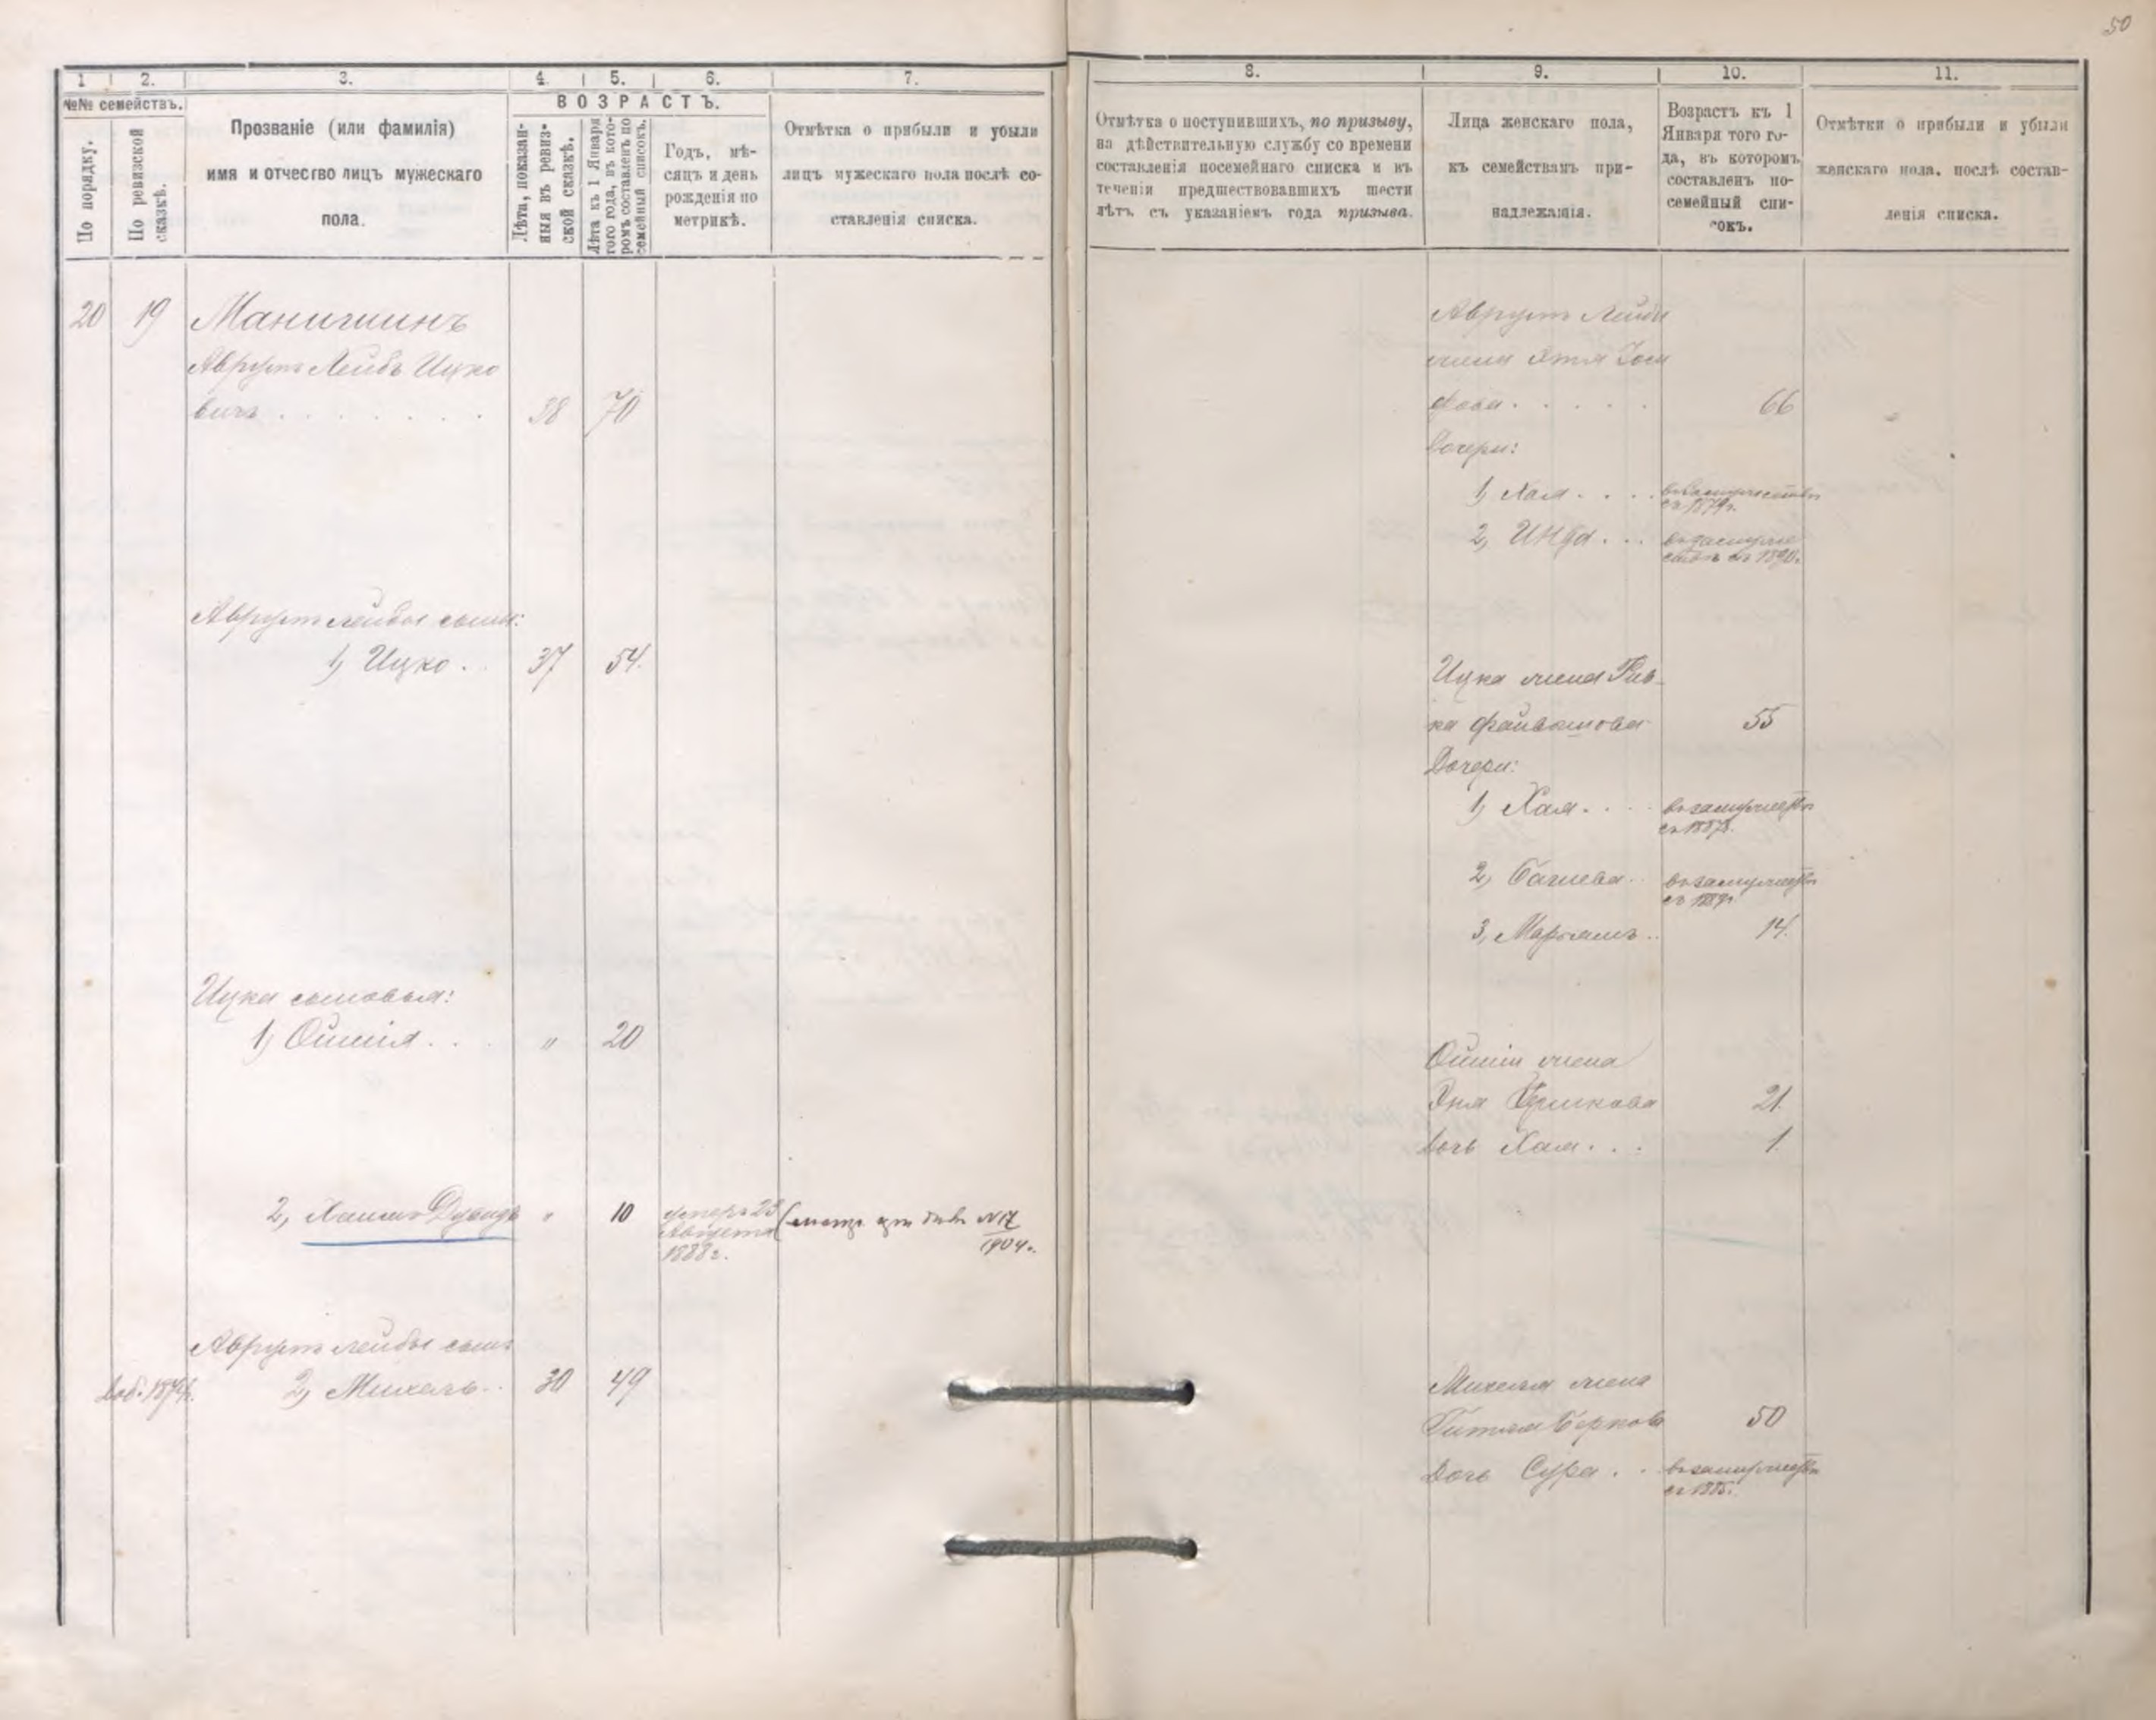 50
1
2.
3.
4.
5.
6.
7.
№№ семействъ.
По порядку.
По ревизской сказкѣ.
Прозваніе (или фамилія)
имя и отчество лицъ мужескаго
пола.
ВОЗРАСТЪ.
Лѣта, показан-
ныя въ ревиз-
ской сказкѣ.
Лѣта къ 1 Января
того года, въ кото-
ромъ составленъ по
семейный списокъ.
Годъ, мѣ-
сяцъ и день
рожденія по
метрикѣ.
Отмѣтка о прибыли и убыли
лицъ мужескаго пола послѣ со-
ставленія списка.
20 19 Маничминъ
Аврумъ Лейбъ Ицко
вичъ . . . . . . 38 70
Аврумъ Лейбы сыны:
1, Ицко . . 37 54.
Ицка сыновья:
1, Ойшія . . " 20
2, Хаимъ Дувидъ " 10
Августа
1888 г.
№ 17
1904 г.
Аврумъ Лейбы сынъ
Доб. 1874 г. 2, Михель . . 30 49
8.
9.
10.
11.
Отмѣтка о поступившихъ, по призыву,
на дѣйствительную службу со времени
составленія посемейнаго списка и въ
теченіи предшествовавшихъ шести
лѣтъ съ указаніемъ года призыва.
Лица женскаго пола,
къ семействамъ при-
надлежащія.
Возрастъ къ 1
Января того го-
да, въ которомъ
составленъ по-
семейный спи-
сокъ.
Отмѣтки о прибыли и убыли
женскаго пола, послѣ состав-
ленія списка.
Аврумъ Лейбы
жена Этя Іоси
фова . . . . . 66
Дочери:
1, Хая . . . . въ замужествѣ
съ 1879 г.
2, Инда . . . въ замуже
ствѣ съ 1890 г.
Ицка жена Рив-
ка Файвишова 55
Дочери:
1, Хая . . . . въ замужествѣ
съ 1887 г.
2, Башева . . въ замужествѣ
съ 1889 г.
3, Марьямъ . . 14.
Ойшіи жена
21.
Дочь Хая . . . 1.
Михеля жена
Гитля Беркова 50
Дочь Сура . . въ замужествѣ
съ 1885 г.